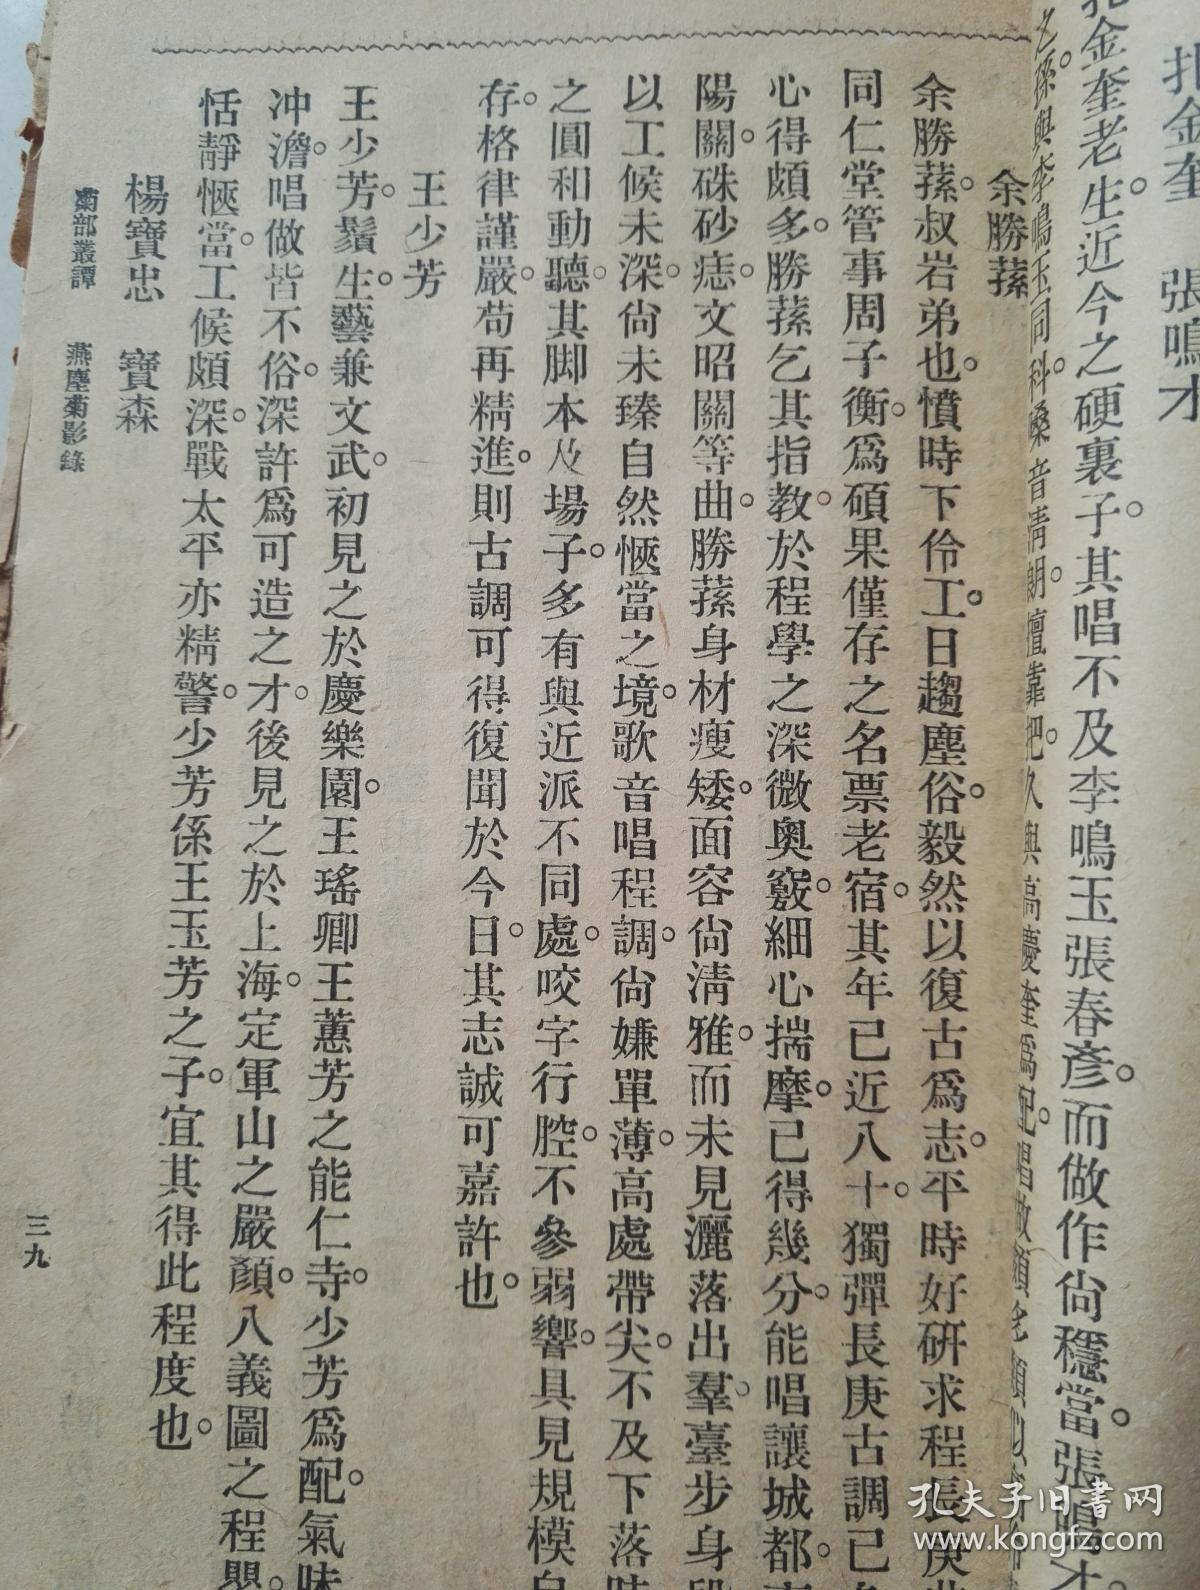 扎金奎　張鳴才
扎金奎老生。近今之硬裏子。其唱不及李鳴玉張春彥。而做作尙穩當。張鳴才。
之孫。與李鳴玉同科。嗓音淸朗。擅靠把。久與高慶奎爲配。唱做頗老
余勝蓀
余勝蓀。叔岩弟也。憤時下伶工。日趨塵俗。毅然以復古爲志。平時好研求程長庚
同仁堂管事周子衡。爲碩果僅存之名票老宿。其年已近八十。獨彈長庚古調已
心得頗多。勝蓀乞其指教。於程學之深微奧竅。細心揣摩。已得幾分。能唱讓城都。
陽關。硃砂痣。文昭關等曲。勝蓀身材瘦矮。面容尙淸雅。而未見灑落出羣。臺步身段
以工候未深。尙未臻自然愜當之境。歌音唱程調。尙嫌單薄。高處帶尖。不及下落
之圓和動聽。其脚本及場子。多有與近派不同處。咬字行腔。不參弱響。具見規模
存。格律謹嚴。苟再精進。則古調可得復聞於今日。其志誠可嘉許也。
王少芳
王少芳。鬚生。藝兼文武。初見之於慶樂園。王瑤卿王蕙芳之能仁寺。少芳爲配。氣味
冲澹。唱做皆不俗。深許爲可造之才。後見之於上海。定軍山之嚴顏。八義圖之程嬰
恬靜愜當。工候頗深。戰太平亦精警。少芳係王玉芳之子。宜其得此程度也。
楊寶忠　寶森
菊部叢譚　燕塵菊影錄
三九
孔夫子旧書网
www.kongfz.com